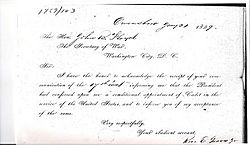 The Hon. John B. Floyd
The Secretary of War,
Washington City, D. C.
Sir:
I have the honor to acknowledge the receipt of your com-
munication of the informing me that the President
had conferred upon me a conditional appointment of Cadet in the
service of the United States, and to inform you of my acceptance
of the same.
Very respectfully,
Your obedient servant,